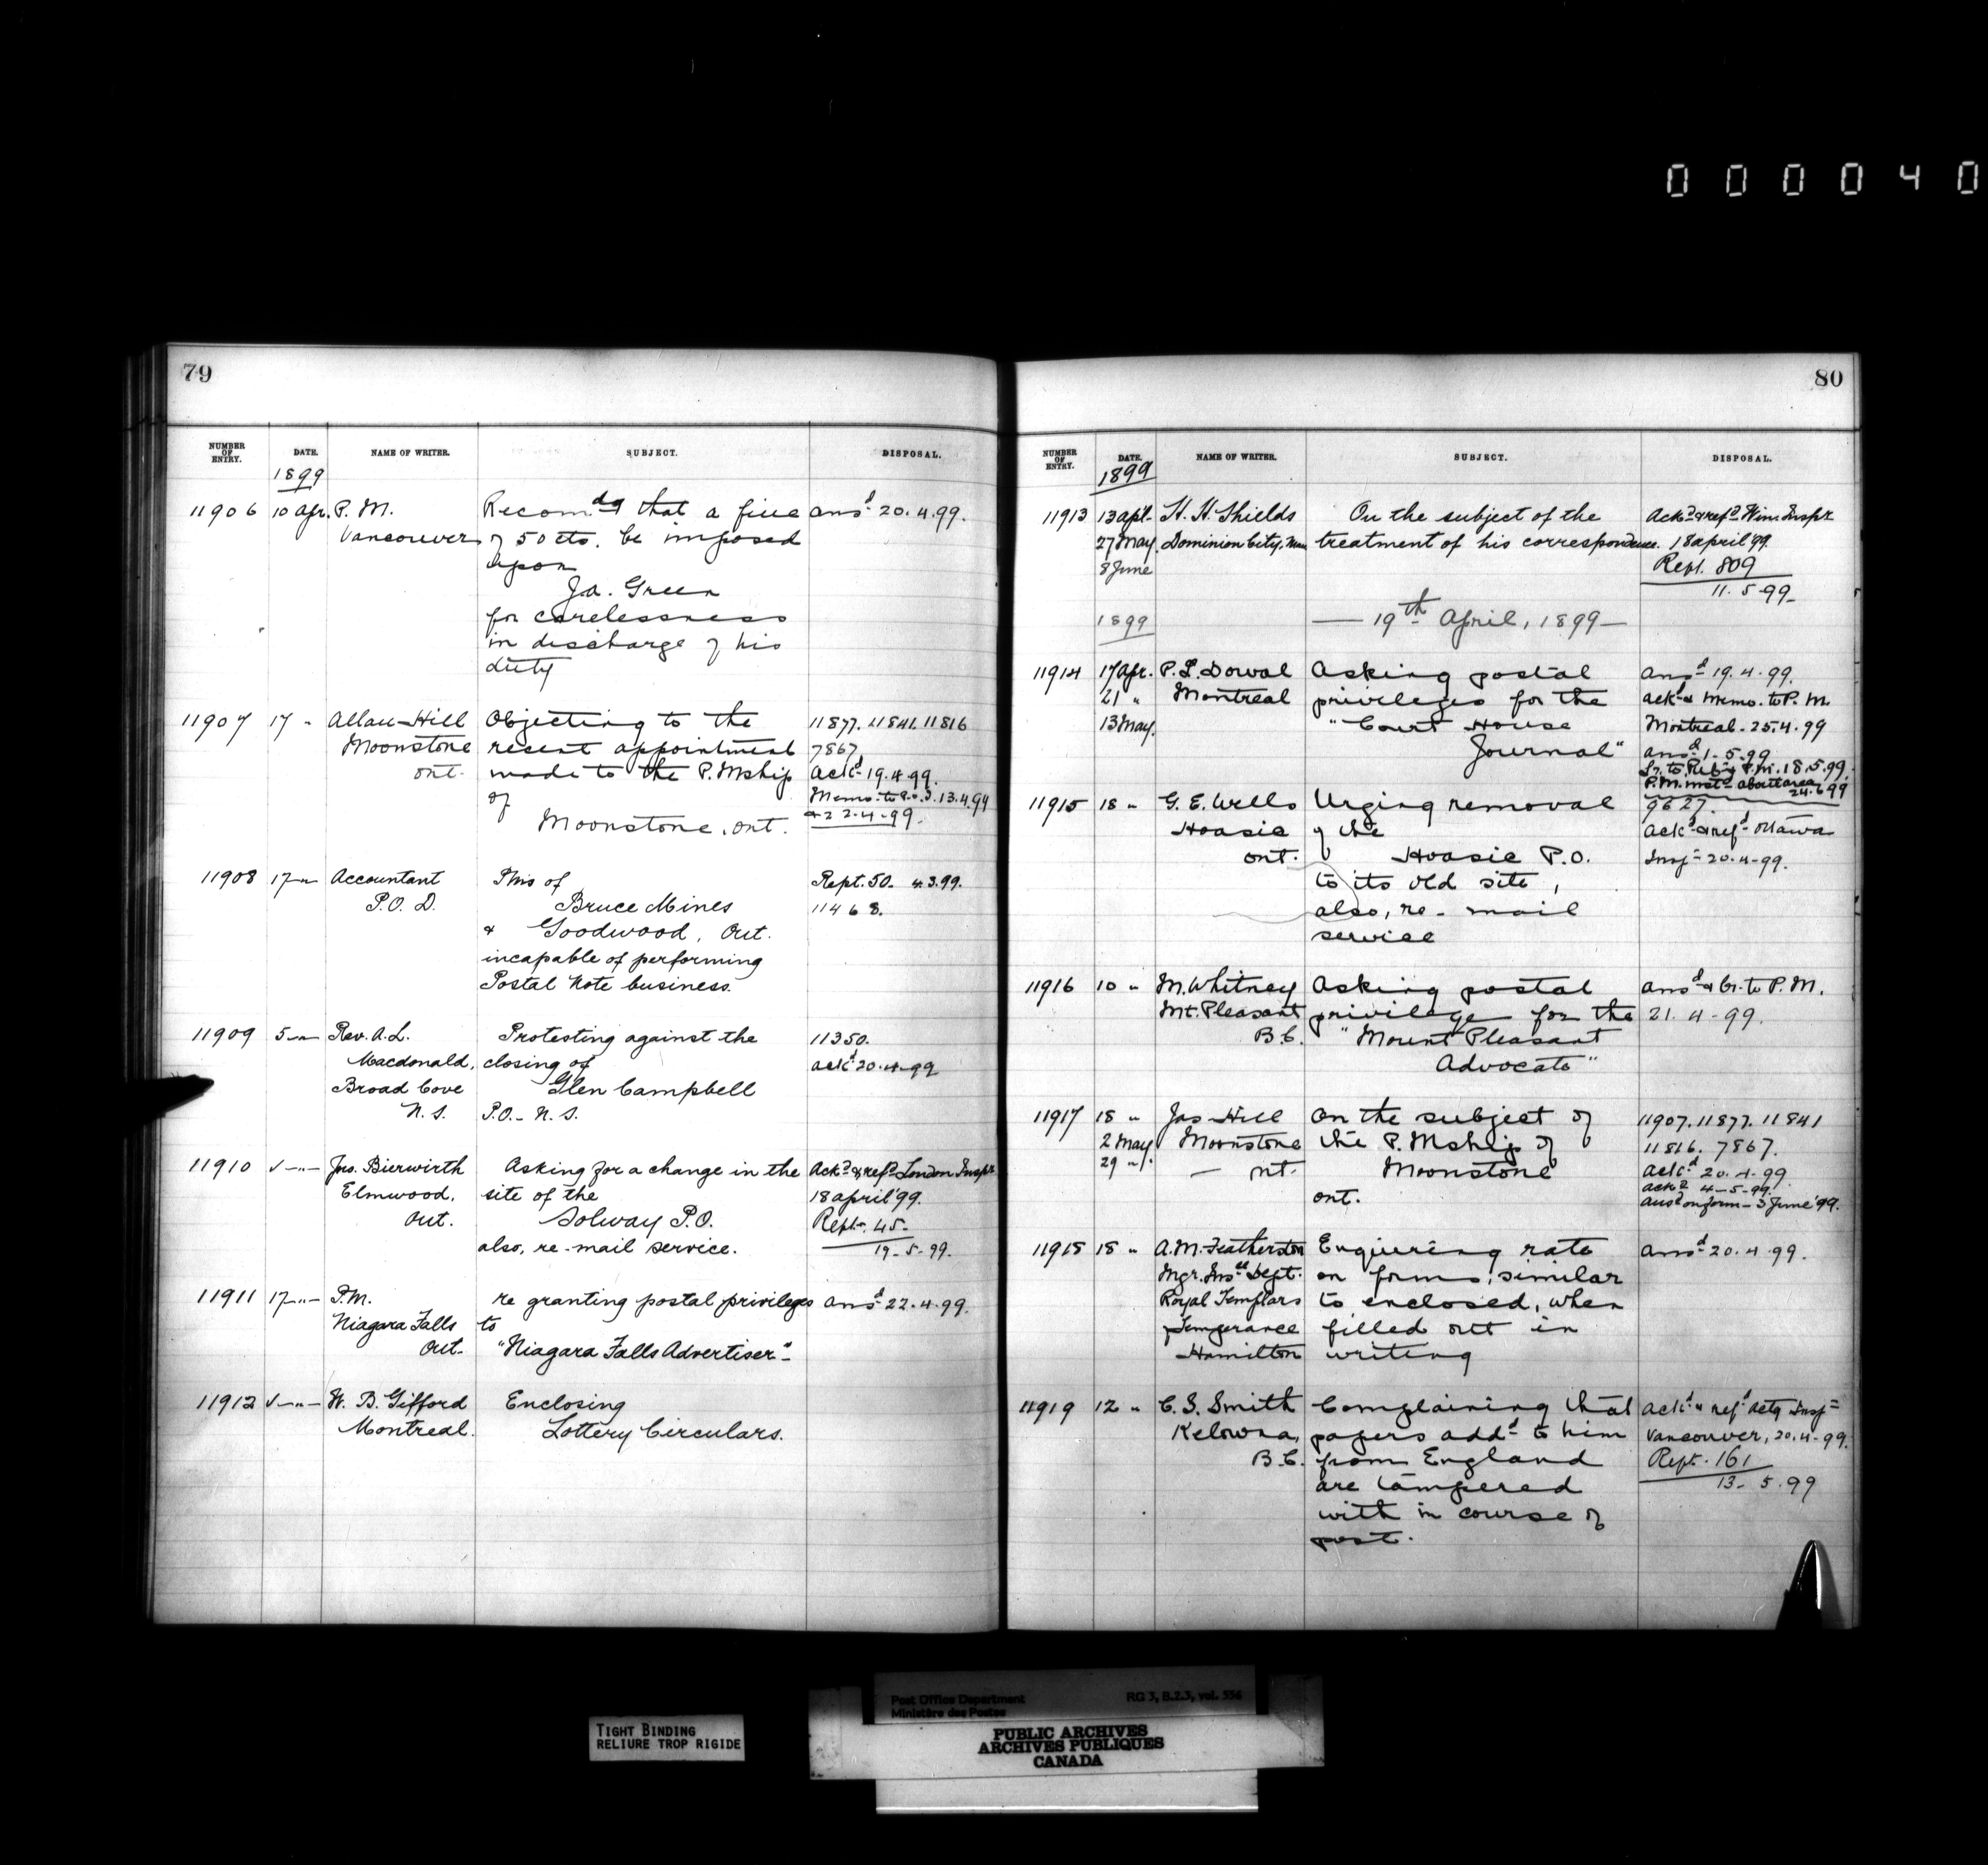 000040
79
NUMBER OF ENTRY. DATE. NAME OF WRITER. SUBJECT. DISPOSAL.
1899
11906 10 Apr. P.M. Recomdg that a fine ansd 20.4.99.
Vancouver of 50 cts. be imposed
upon
Ja. Green
for carelessness
in discharge of his
duty
11907 17 " Allan Hill Objecting to the 11877. 11841. 11816
Moonstone recent appointment 7867
ont. made to the P.Mship ackd 19.4.99.
of Memo. to P.O.I. 13.4.99
Moonstone, ont. & 22.4.99.
11908 17 " Accountant P.ms of Rept. 50. 4.3.99.
P.O.D. Bruce Mines 11468.
& Goodwood, Ont.
incapable of performing
Postal Note business.
11909 5 " Rev. A.L. Protesting against the 11350.
Macdonald, closing of ackd 20.4.99
Broad Cove Glen Campbell
N.S. P.O. N.S.
11910 " Jno. Bierwirth Asking for a change in the Ackd & refd London Inspr
Elmwood, site of the 18 april '99.
Ont. Solway P.O. Rept. 45
also, re-mail service. 19-5-99.
11911 17 " P.M. re granting postal privileges ansd 22.4.99.
Niagara Falls to
Ont. "Niagara Falls Advertiser"
11912 " W. B. Gifford Enclosing
Montreal. Lottery Circulars.
80
NUMBER OF ENTRY. DATE. NAME OF WRITER. SUBJECT. DISPOSAL.
1899
11913 13 apl. H. H. Shields On the subject of the Ackd & refd Win. Inspr
27 May Dominion City, Man treatment of his correspondence. 18 april '99.
8 June Rept. 809
11.5.99
1899 — 19th April, 1899 —
11914 17 Apr. P. L. Dowal Asking postal ansd 19.4.99.
21 " Montreal privileges for the ackd & Memo. to P.M.
13 May. "Court House Montreal 25.4.99
Journal" ansd 1.5.99
Lr. to Pub. & P.M. 18.5.99.
24.6.99
11915 18 " G. E. Wells Urging removal 9627
Hoasic of the ackd & refd Ottawa
ont. Hoasic P.O. Insp. 20.4.99.
to its old site,
also, re-mail
service
11916 10 " M. Whitney Asking postal ansd & lr. to P.M.
Mt. Pleasant privilege for the 21.4-99.
B.C. "Mount Pleasant
Advocate"
11917 18 " Jas Hill On the subject of 11907. 11877. 11841
2 May Moonstone the P.Mship of 11816. 7867.
29 " — nt. Moonstone ackd 20.4.99
ont. ackd 4-5-99.
ansd on form — 3 June '99.
11918 18 " A.M. Featherston Enquiring rate ansd 20.4.99.
Mgr. Insce Dept. on forms, similar
Royal Templars to enclosed, when
Temperance filled out in
Hamilton writing
11919 12 " C. S. Smith Complaining that ackd & refd actg Insp
Kelowna, papers addd to him Vancouver, 20.4.99.
B.C. from England Rept. 161
are tampered 13-5.99
with in course of
post.
Post Office Department RG 3, B.2.3, vol. 556
Ministère des Postes
TIGHT BINDING
RELIURE TROP RIGIDE
PUBLIC ARCHIVES
ARCHIVES PUBLIQUES
CANADA